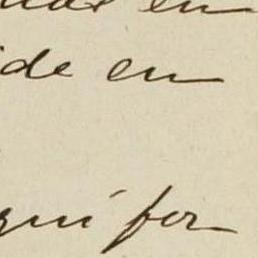 en
ide en
qui for